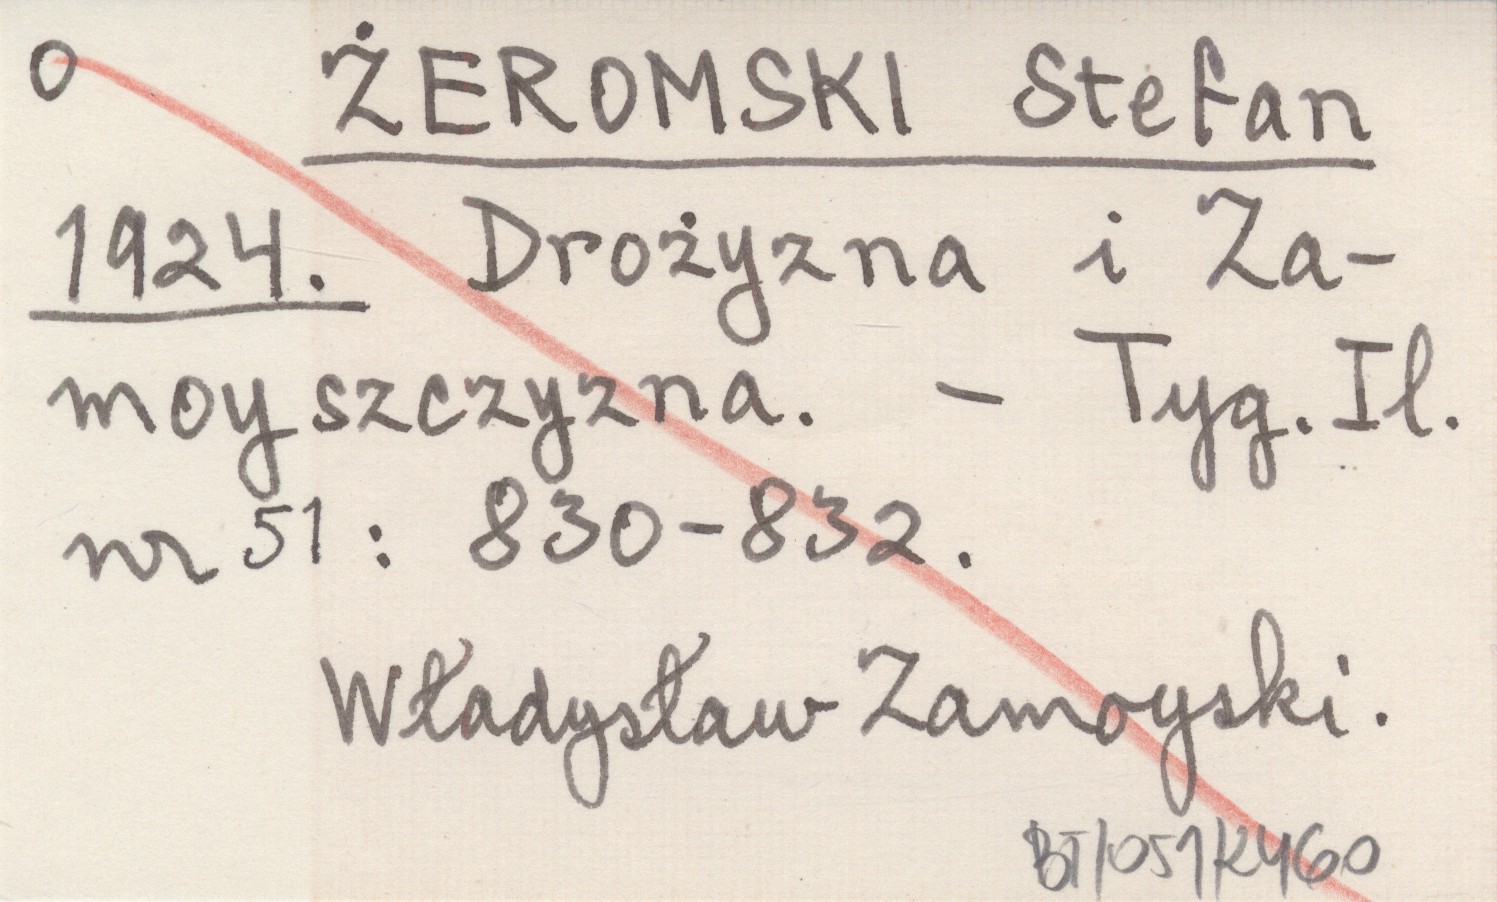 O ŻEROMSKI Stefan
1924. Drożyzna i Za-
moyszczyzna. - Tyg. Il.
nr 51 : 830-832.
Władysław Zamoyski.
BT/051/K460